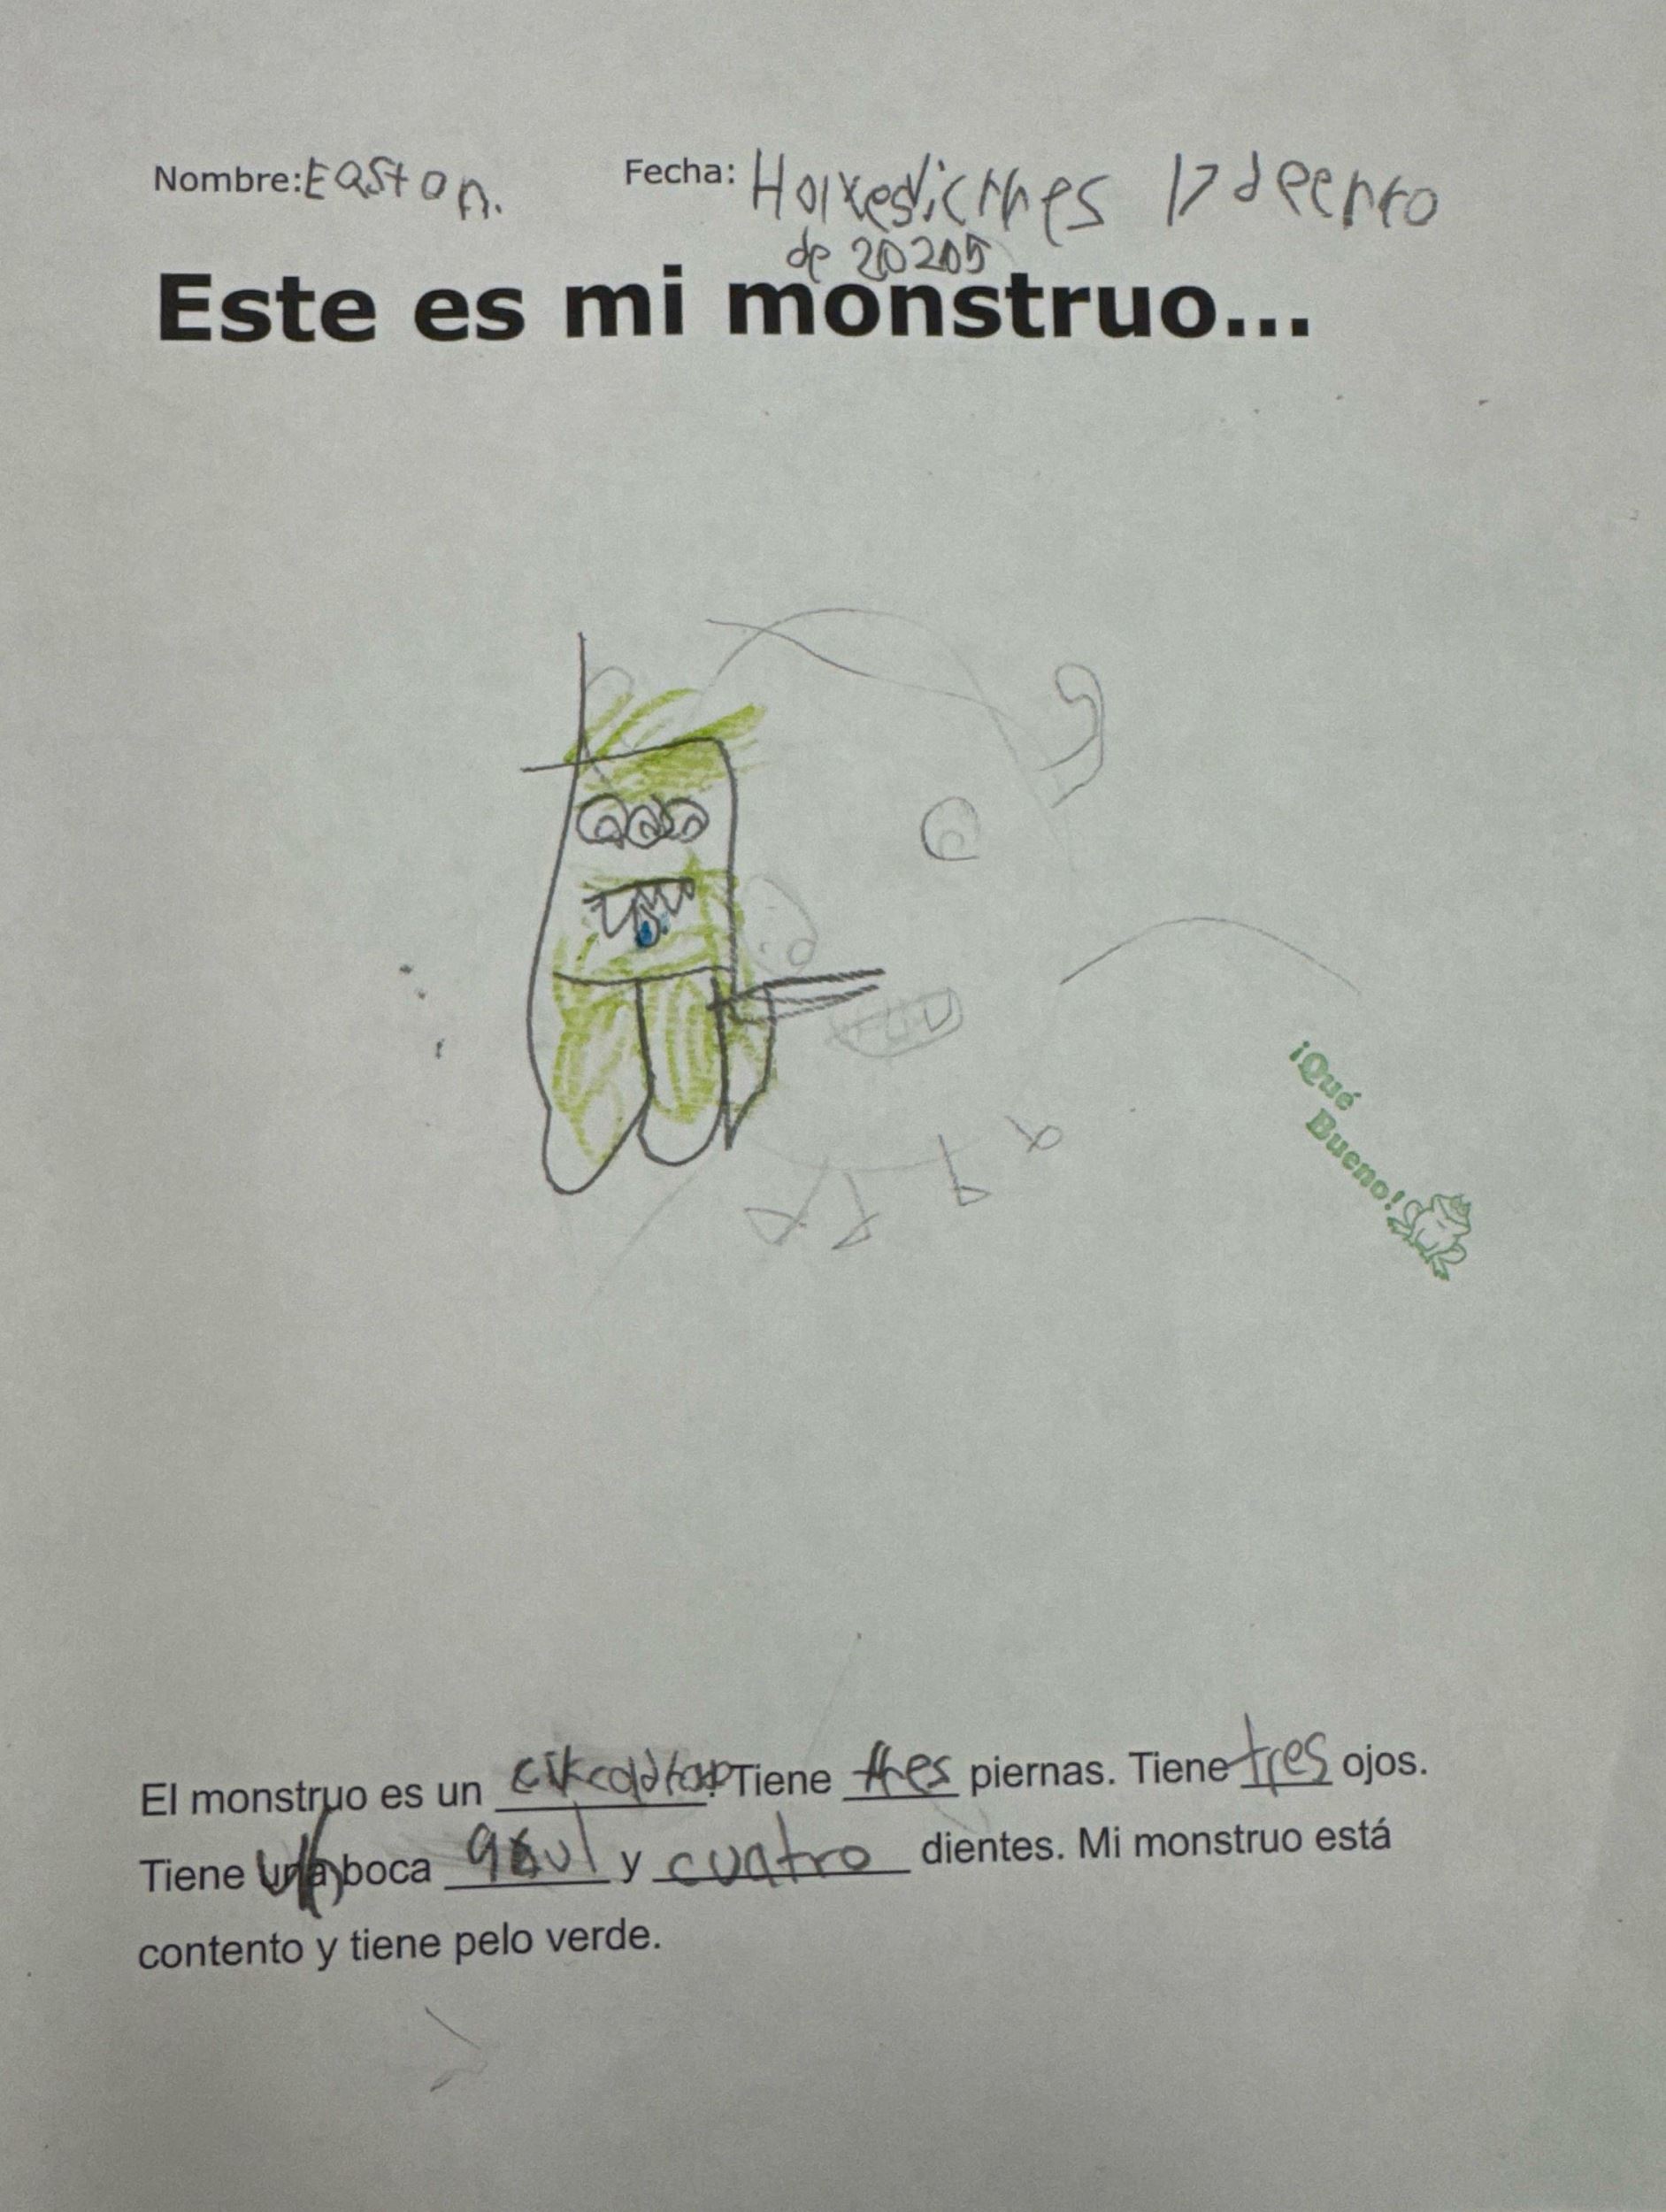 Nombre: Easton. Fecha: Hoixesvicrnes 17 deenro
de 20205
Este es mi monstruo...
¡Qué
Bueno!
El monstruo es un Tiene tres piernas. Tiene tres ojos.
Tiene un boca y cuatro dientes. Mi monstruo está
contento y tiene pelo verde.